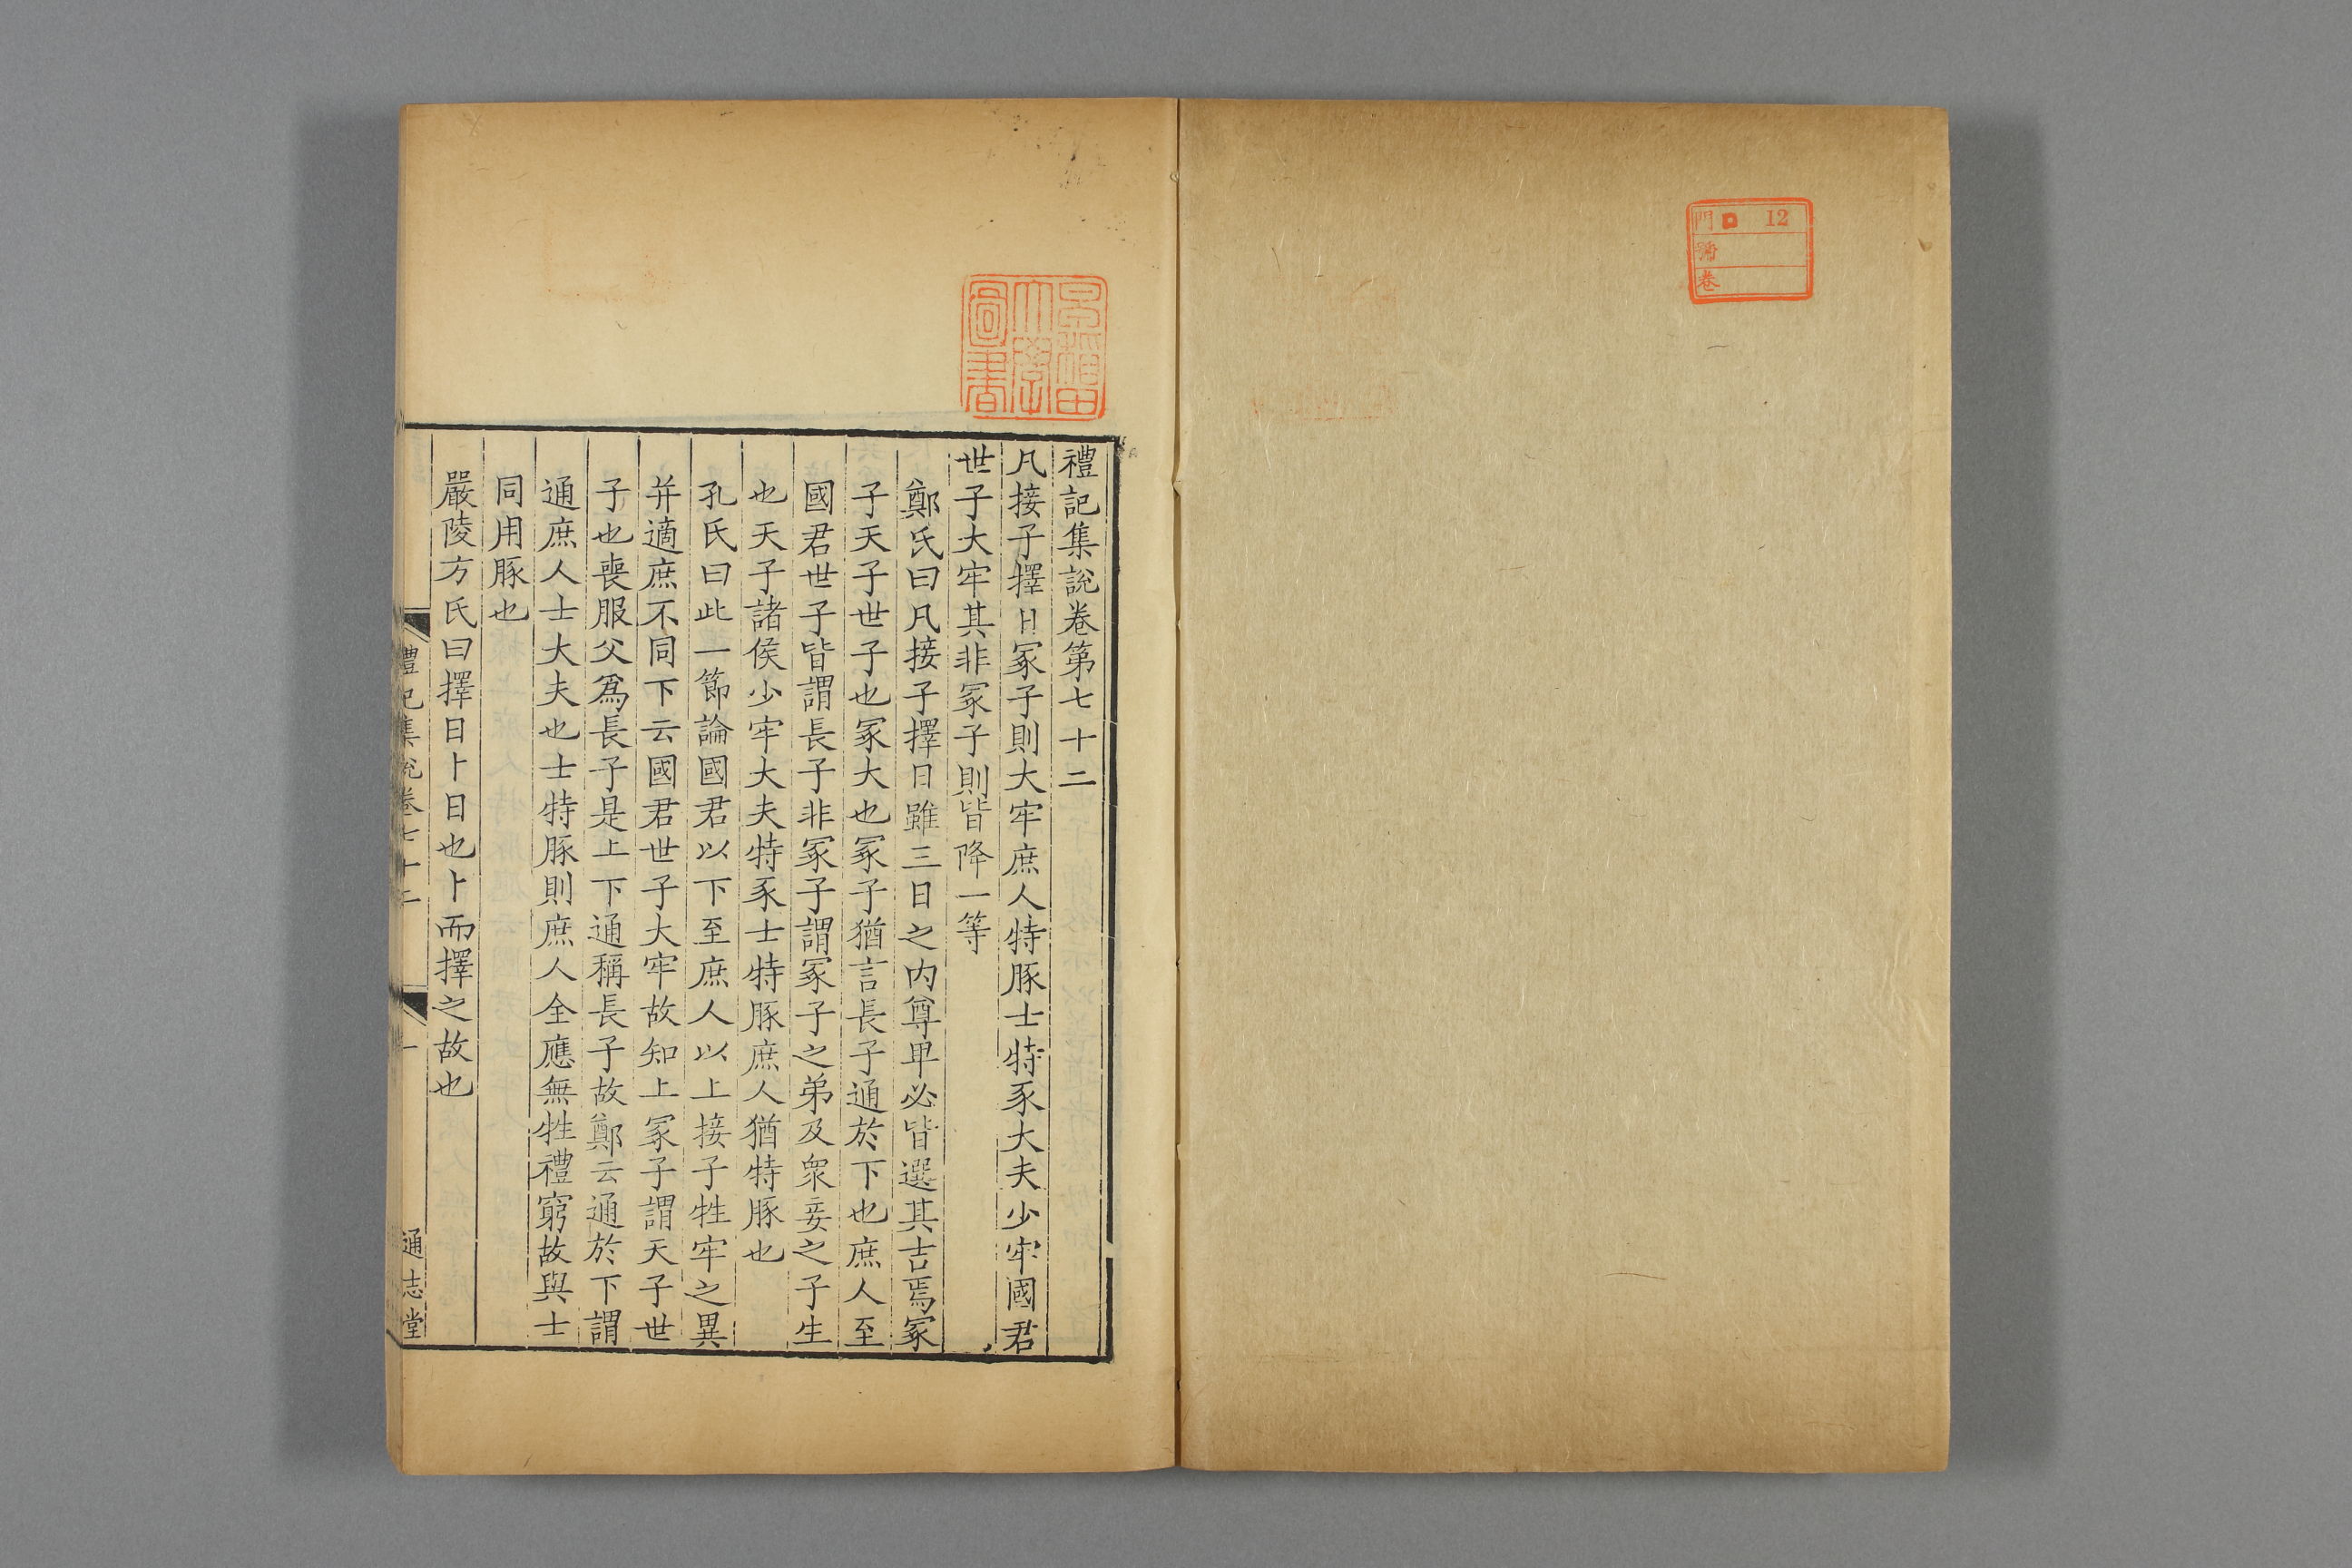 門 口 12
號
卷
早稲田
大學
圖書
禮記集說卷第七十二
凡接子擇日冢子則大牢庶人特豚士特豕大夫少牢國君
世子大牢其非冢子則皆降一等
鄭氏曰凡接子擇日雖三日之内尊卑必皆選其吉焉冢
子天子世子也冢大也冢子猶言長子通於下也庶人至
國君世子皆謂長子非冢子謂冢子之弟及衆妾之子生
也天子諸侯少牢大夫特豕士特豚庶人猶特豚也
孔氏曰此一節論國君以下至庶人以上接子牲牢之異
并適庶不同下云國君世子大牢故知上冢子謂天子世
子也喪服父爲長子是上下通稱長子故鄭云通於下謂
通庶人士大夫也士特豚則庶人全應無牲禮窮故與士
同用豚也
嚴陵方氏曰擇日卜日也卜而擇之故也
禮記集說卷七十二 一 通志堂